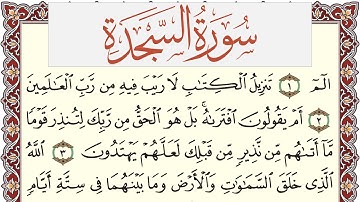 سُورَةُ السَّجْدَةِ
الٓمٓ ١ تَنزِيلُ ٱلْكِتَٰبِ لَا رَيْبَ فِيهِ مِن رَّبِّ ٱلْعَٰلَمِينَ
٢ أَمْ يَقُولُونَ ٱفْتَرَىٰهُ ۚ بَلْ هُوَ ٱلْحَقُّ مِن رَّبِّكَ لِتُنذِرَ قَوْمًا
مَّآ أَتَىٰهُم مِّن نَّذِيرٍ مِّن قَبْلِكَ لَعَلَّهُمْ يَهْتَدُونَ ٣ ٱللَّهُ
ٱلَّذِى خَلَقَ ٱلسَّمَٰوَٰتِ وَٱلْأَرْضَ وَمَا بَيْنَهُمَا فِى سِتَّةِ أَيَّامٍ